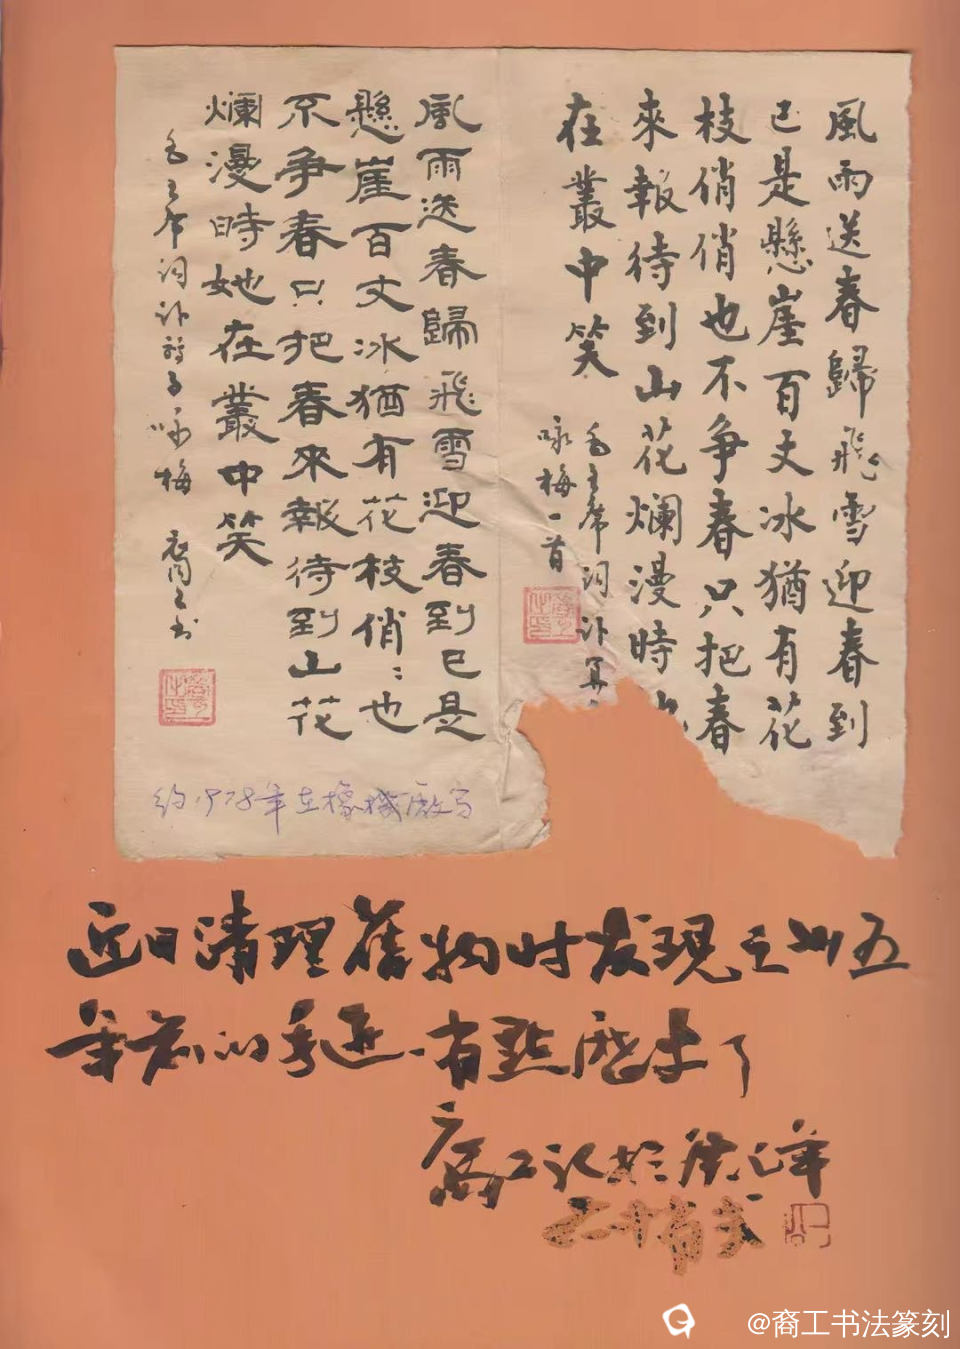 風雨送春歸飛雪迎春到
已是懸崖百丈冰猶有花
枝俏俏也不争春只把春
來報待到山花爛漫時
在叢中笑
毛主席詞卜算
咏梅一首
風雨送春歸飛雪迎春到已是
懸崖百丈冰猶有花枝俏:也
不争春只把春來報待到山花
爛漫時她在叢中笑
毛主席词卜算子咏梅 裔工书
约1978年在橡機廠写
近日清理舊物时发现之卅五
年前的手迹.有點历史了
裔工记于癸巳年
@裔工书法篆刻